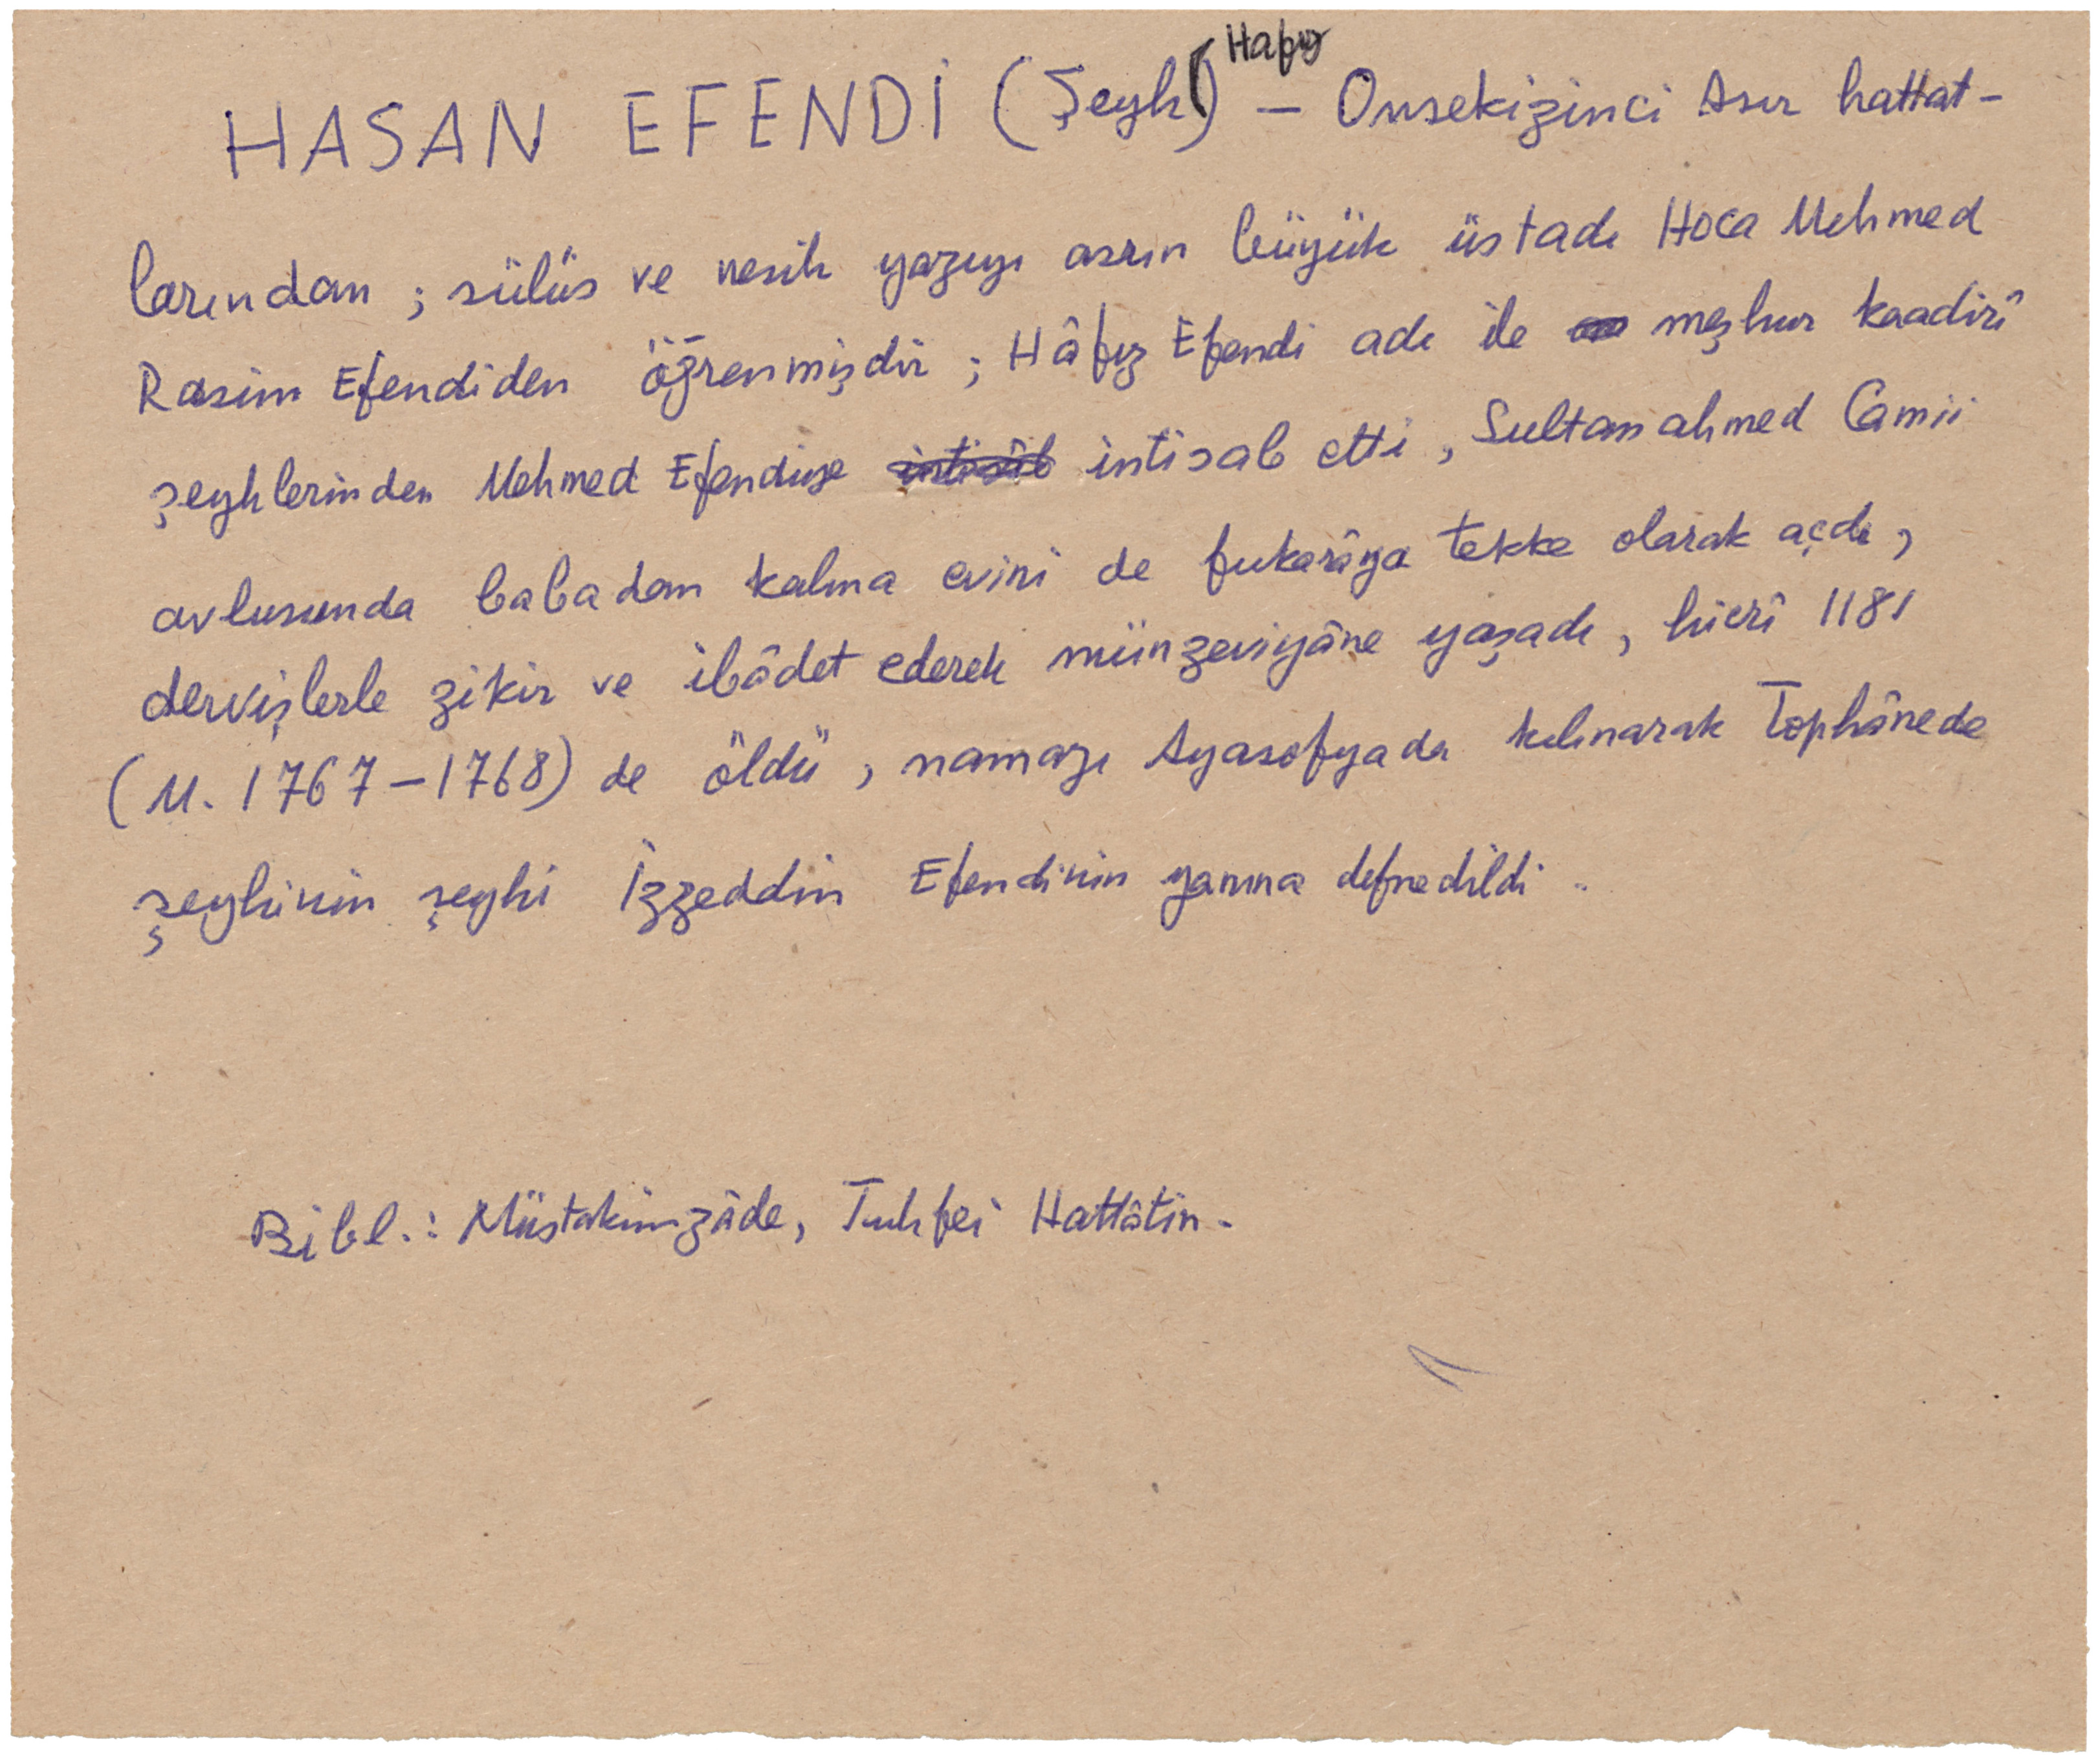 HASAN EFENDİ (Şeyh Hafız) — Onsekizinci Asır hattat-
larından ; sülüs ve nesih yazıyı asrın büyük üstadı Hoca Mehmed
Rasim Efendiden öğrenmişdir ; Hâfız Efendi adı ile meşhur kaadirî
şeyhlerinden Mehmed Efendiye intisâb intisab etti, Sultanahmed Camii
avlusunda babadan kalma evini de fukarâya tekke olarak açdı,
dervişlerle zikir ve ibâdet ederek münzeviyâne yaşadı, hicrî 1181
(M. 1767-1768) de öldü, namazı Ayasofyada kılınarak Tophânede
şeyhinin şeyhi İzzeddin Efendinin yanına defnedildi.
Bibl.: Müstakimzâde, Tuhfei Hattâtin.